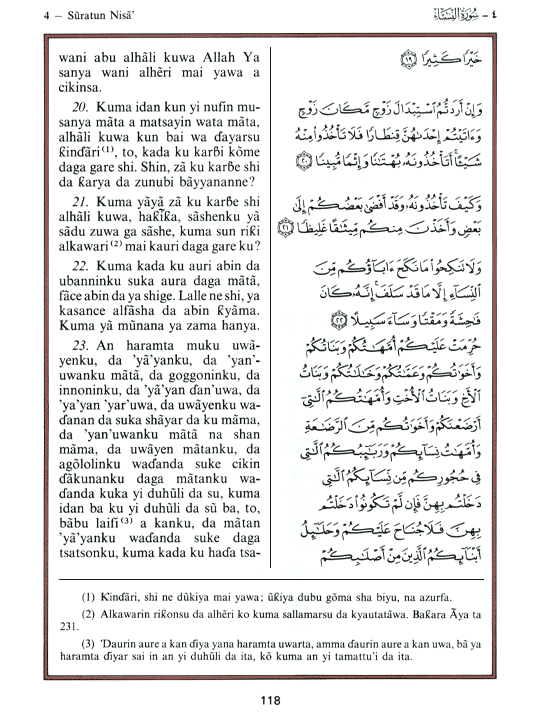 4 — Sūratun Nisā’
٤ - سُورَةُ النِّسَاءِ
wani abu alhãli kuwa Allah Ya
sanya wani alhẽri mai yawa a
cikinsa.
20. Kuma idan kun yi nufin mu-
sanya mãta a matsayin wata mãta,
alhãli kuwa kun bai wa ɗayarsu
ƙinɗãri⁽¹⁾, to, kada ku karɓi kõme
daga gare shi. Shin, zã ku karɓe shi
da ƙarya da zunubi bãyyananne?
21. Kuma yãyã zã ku karɓe shi
alhãli kuwa, haƙĩƙa, sãshenku yã
sãdu zuwa ga sãshe, kuma sun riƙi
alkawari⁽²⁾ mai kauri daga gare ku?
22. Kuma kada ku auri abin da
ubanninku suka aura daga mãtã,
fãce abin da ya shige. Lalle ne shi, ya
kasance alfãsha da abin ƙyãma.
Kuma yã mũnana ya zama hanya.
23. An haramta muku uwã-
yenku, da ’yã’yanku, da ’yan’-
uwanku mãtã, da goggoninku, da
innoninku, da ’yã’yan ɗan’uwa, da
’ya’yan ’yar’uwa, da uwãyenku wa-
ɗanan da suka shãyar da ku mãma,
da ’yan’uwanku mãtã na shan
mãma, da uwãyen mãtanku, da
agõlolinku waɗanda suke cikin
ɗãkunanku daga mãtanku wa-
ɗanda kuka yi duhũli da su, kuma
idan ba ku yi duhũli da sũ ba, to,
bãbu laifi⁽³⁾ a kanku, da mãtan
’yã’yanku waɗanda suke daga
tsatsonku, kuma kada ku haɗa tsa-
خَيْرًا كَثِيرًا ﴿١٩﴾
وَإِنْ أَرَدتُّمُ اسْتِبْدَالَ زَوْجٍ مَّكَانَ زَوْجٍ
وَءَاتَيْتُمْ إِحْدَىٰهُنَّ قِنطَارًا فَلَا تَأْخُذُوا مِنْهُ
شَيْـًٔا ۚ أَتَأْخُذُونَهُۥ بُهْتَـٰنًا وَإِثْمًا مُّبِينًا ﴿٢٠﴾
وَكَيْفَ تَأْخُذُونَهُۥ وَقَدْ أَفْضَىٰ بَعْضُكُمْ إِلَىٰ
بَعْضٍ وَأَخَذْنَ مِنكُم مِّيثَـٰقًا غَلِيظًا ﴿٢١﴾
وَلَا تَنكِحُوا مَا نَكَحَ ءَابَآؤُكُم مِّنَ
النِّسَآءِ إِلَّا مَا قَدْ سَلَفَ ۚ إِنَّهُۥ كَانَ
فَـٰحِشَةً وَمَقْتًا وَسَآءَ سَبِيلًا ﴿٢٢﴾
حُرِّمَتْ عَلَيْكُمْ أُمَّهَـٰتُكُمْ وَبَنَاتُكُمْ
وَأَخَوَٰتُكُمْ وَعَمَّـٰتُكُمْ وَخَـٰلَـٰتُكُمْ وَبَنَاتُ
الْأَخِ وَبَنَاتُ الْأُخْتِ وَأُمَّهَـٰتُكُمُ الَّـٰتِىٓ
أَرْضَعْنَكُمْ وَأَخَوَٰتُكُم مِّنَ الرَّضَـٰعَةِ
وَأُمَّهَـٰتُ نِسَآئِكُمْ وَرَبَـٰٓئِبُكُمُ الَّـٰتِى
فِى حُجُورِكُم مِّن نِّسَآئِكُمُ الَّـٰتِى
دَخَلْتُم بِهِنَّ فَإِن لَّمْ تَكُونُوا دَخَلْتُم
بِهِنَّ فَلَا جُنَاحَ عَلَيْكُمْ وَحَلَـٰٓئِلُ
أَبْنَآئِكُمُ الَّذِينَ مِنْ أَصْلَـٰبِكُمْ
(1) Ƙinɗãri, shi ne dũkiya mai yawa; ũƙiya dubu gõma sha biyu, na azurfa.
(2) Alkawarin riƙonsu da alhẽri ko kuma sallamarsu da kyautatãwa. Baƙara Ãya ta
231.
(3) ’Daurin aure a kan ɗiya yana haramta uwarta, amma ɗaurin aure a kan uwa, bã ya
haramta ɗiyar sai in an yi duhũli da ita, kõ kuma an yi tamattu’i da ita.
118